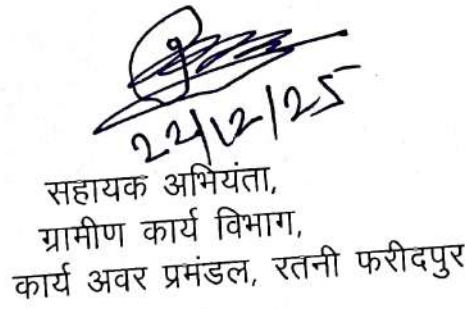 22/12/25
सहायक अभियंता,
ग्रामीण कार्य विभाग,
कार्य अवर प्रमंडल, रतनी फरीदपुर